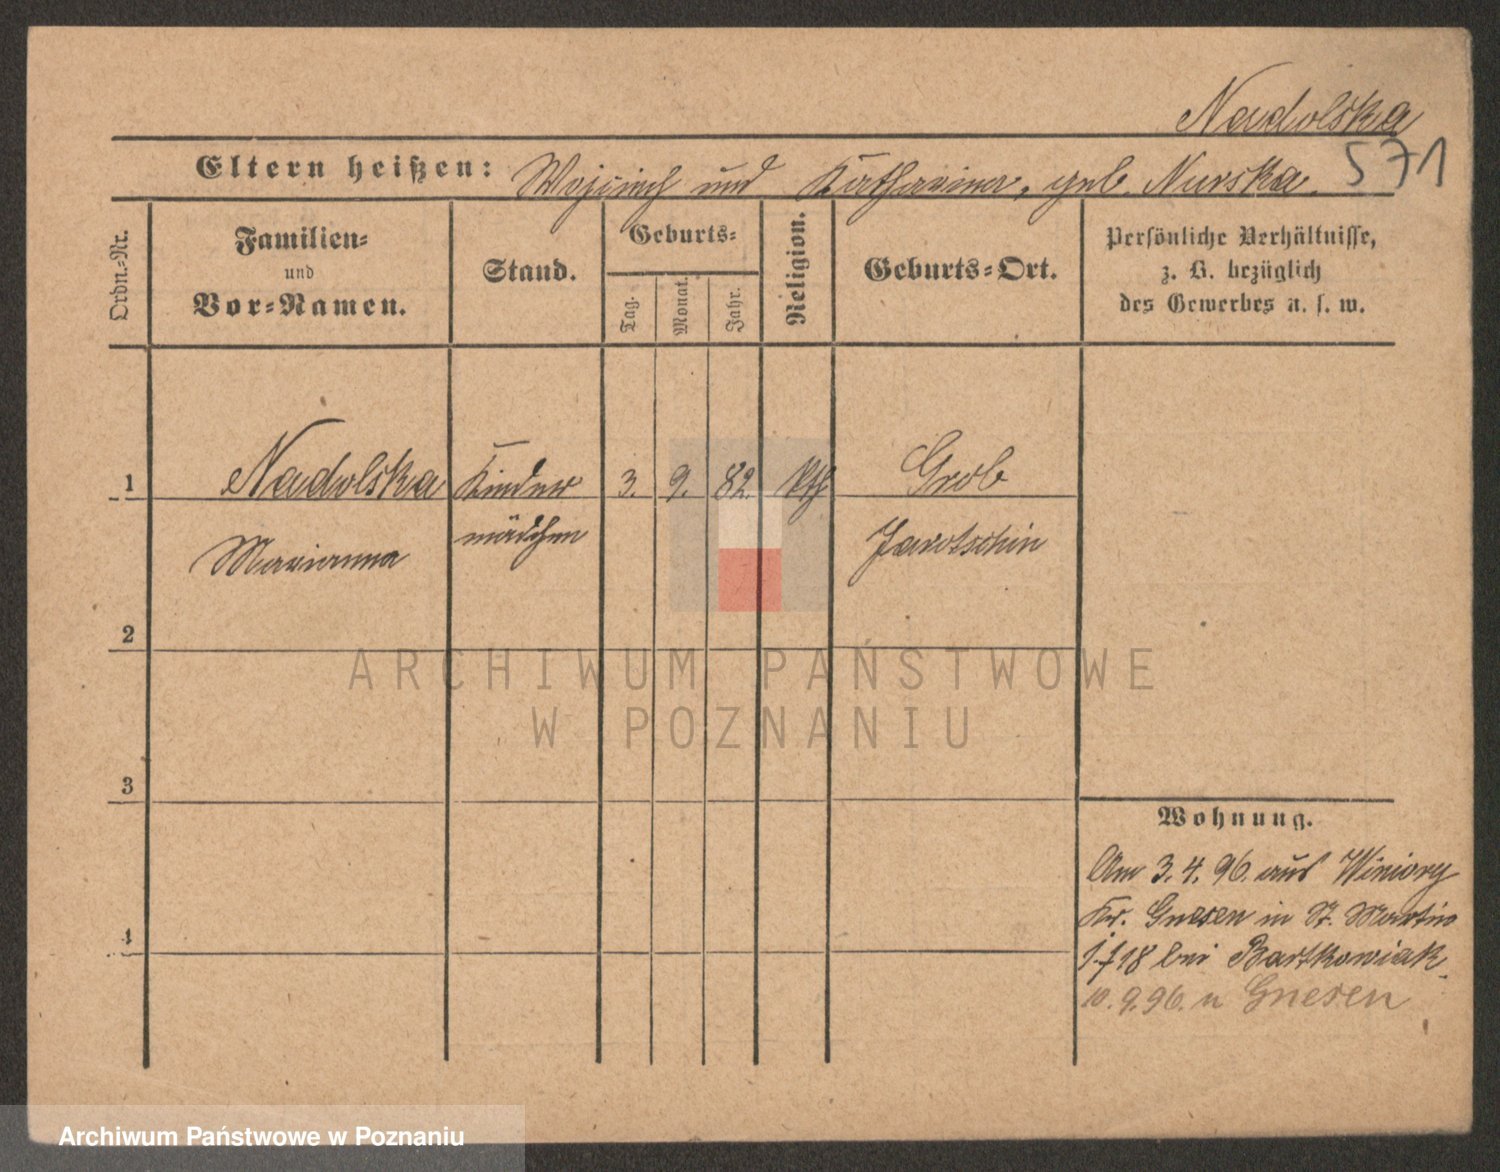 Nadolska
571
Eltern heißen: Wojciech und Katharina, geb. Nurska.
Ordn.-Nr.
Familien-
und
Vor-Namen.
Stand.
Geburts-
Tag.
Monat.
Jahr.
Religion.
Geburts-Ort.
Persönliche Verhältnisse,
z. B. bezüglich
des Gewerbes u. s. w.
1 Nadolska Kinder 3. 9. 82. kth Grob
Marianna mädchen Jarotschin
2
3
4
ARCHIWUM PAŃSTWOWE
W POZNANIU
Wohnung.
Am 3.4.96. aus Winiary
Kr. Gnesen in St. Martin
18 bei Bartkowiak
10.9.96. n Gnesen
Archiwum Państwowe w Poznaniu